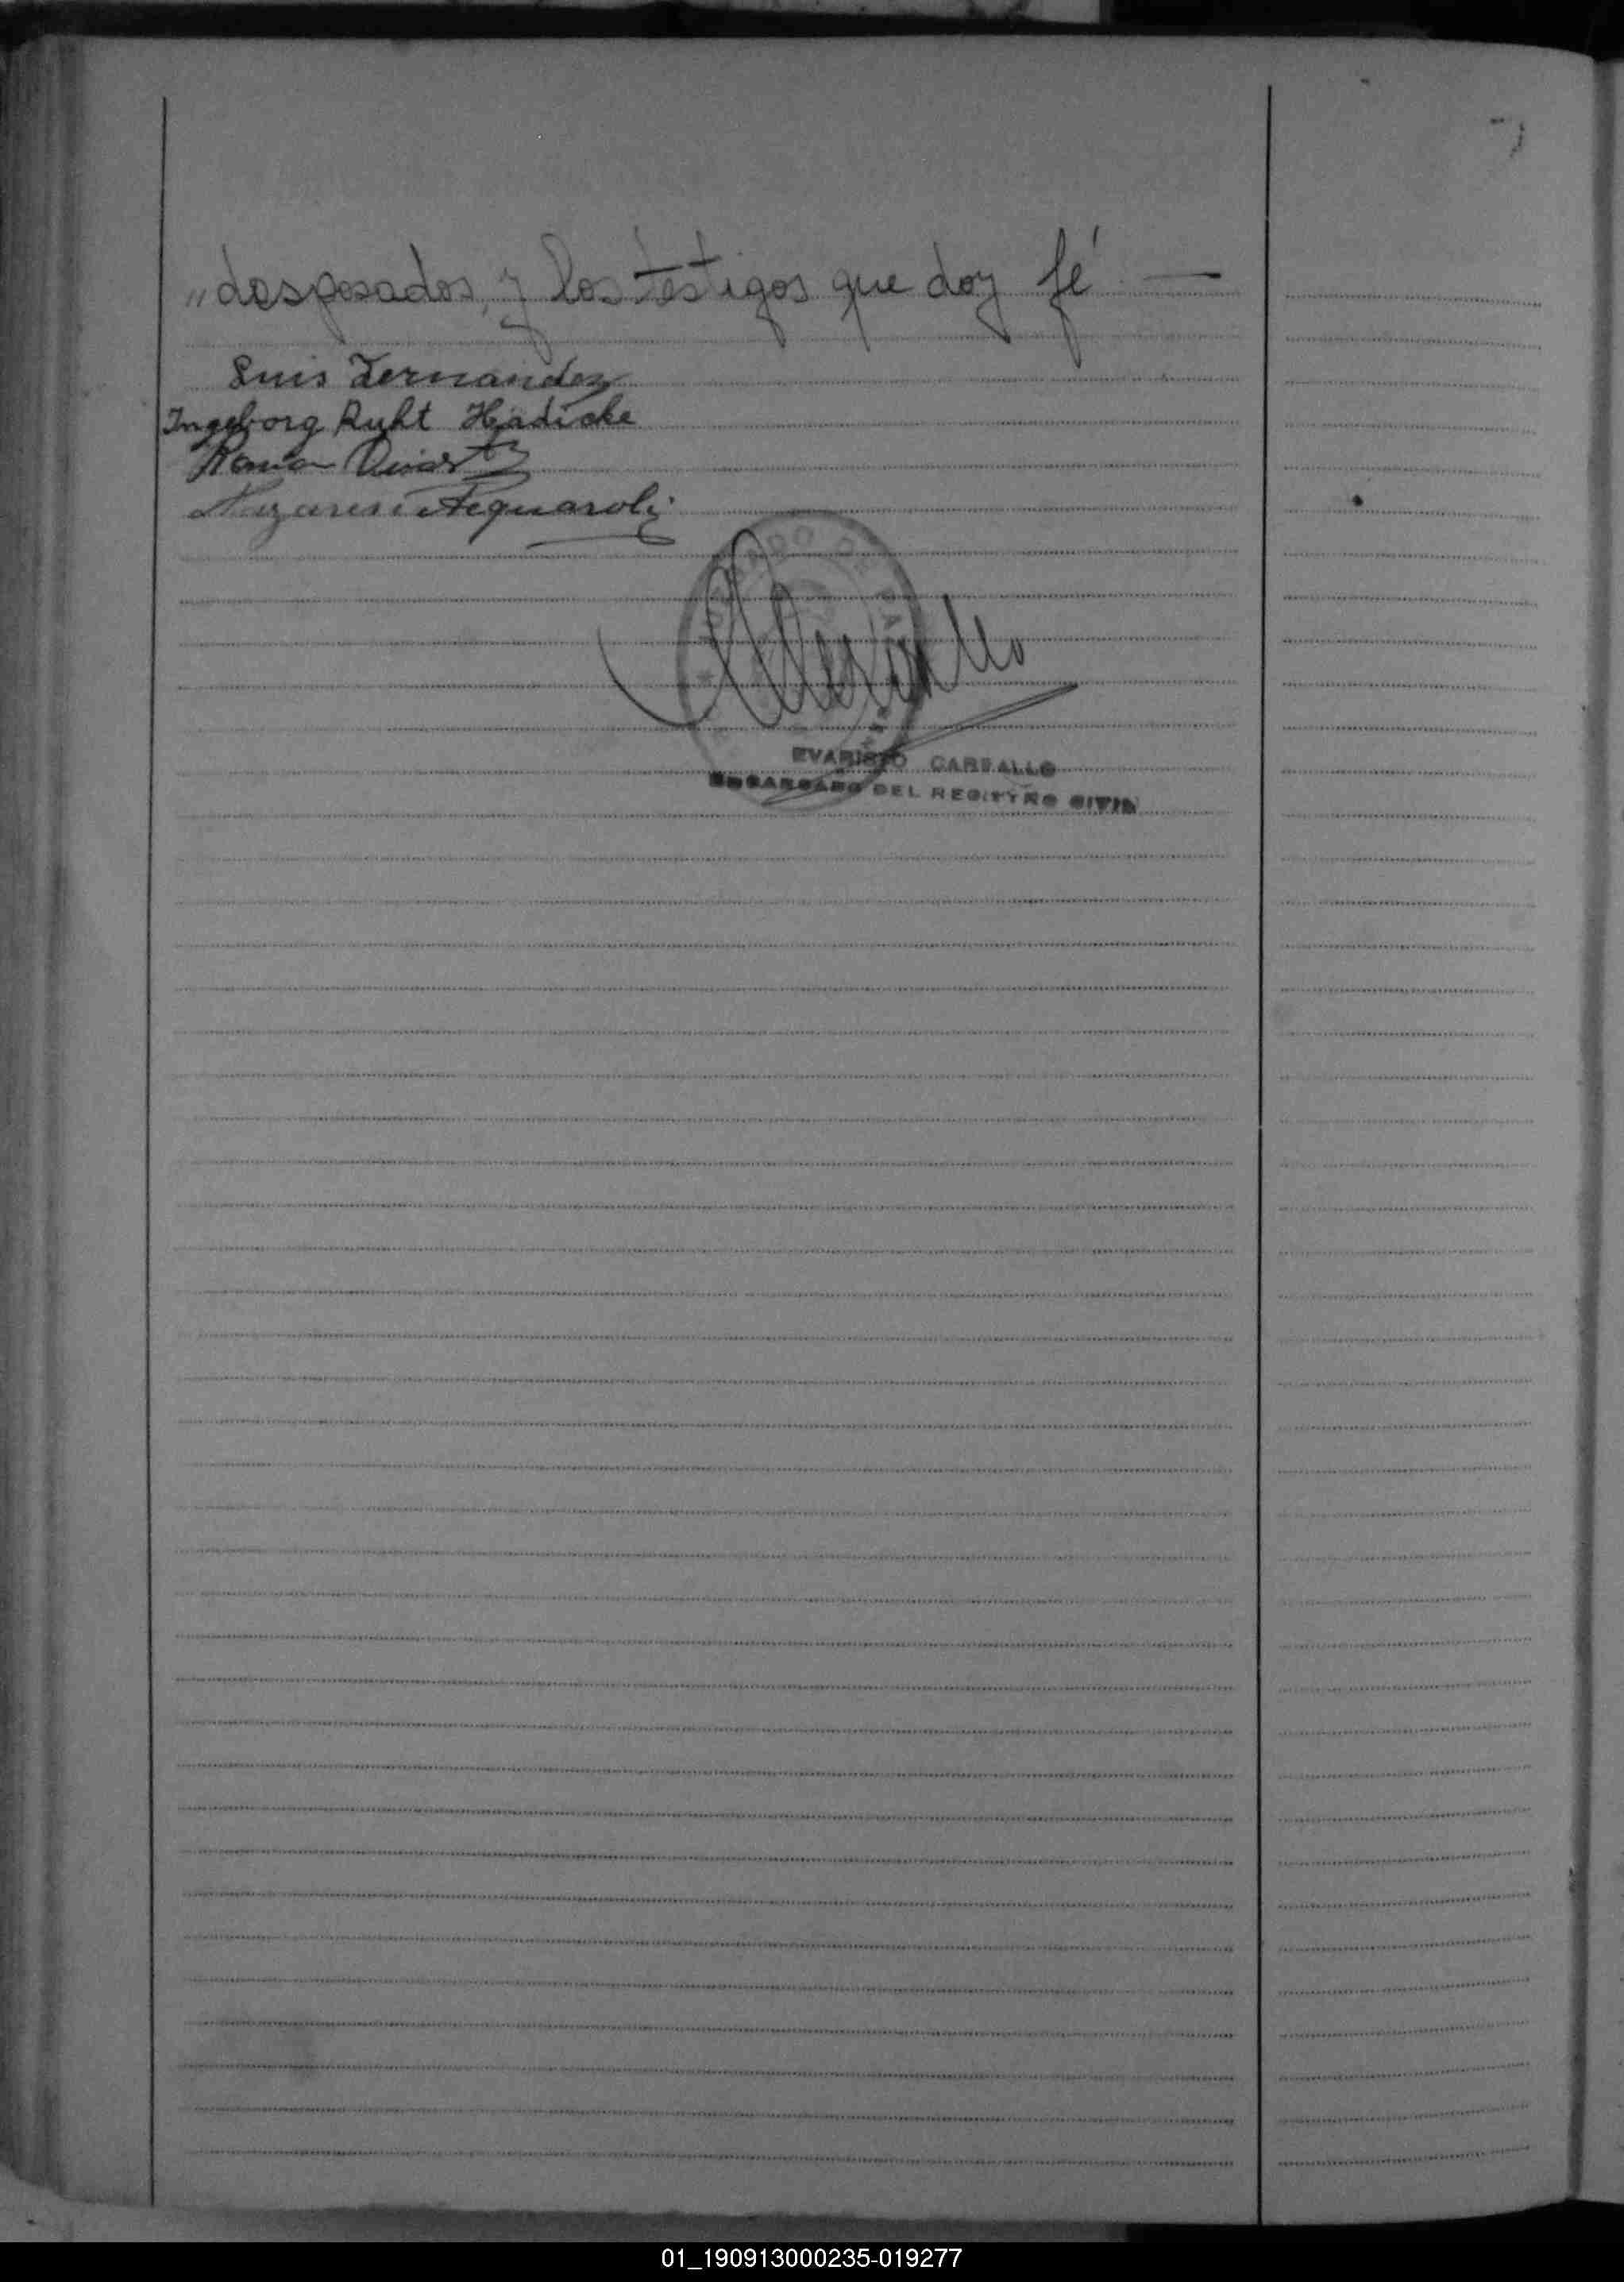 „desposados, y los testigos que doy fé —
Luis Fernandez
Ingeborg Ruht Hädicke
Ramon
JUZGADO DE PAZ
EVARISTO CARBALLO
ENCARGADO DEL REGISTRO CIVIL
01_190913000235-019277